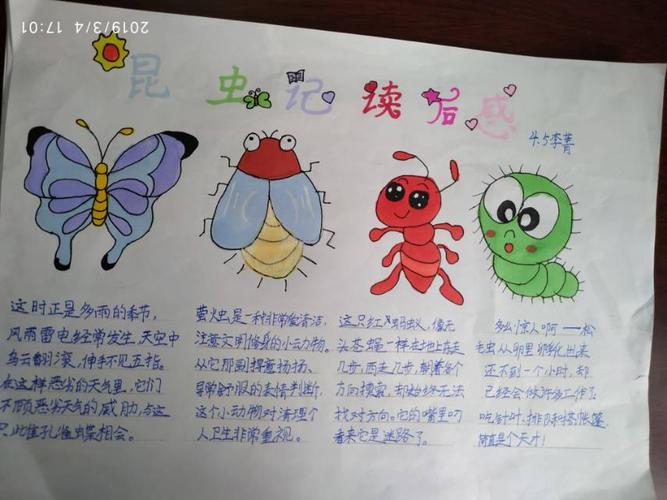 2019/3/4 17:01
昆虫记读后感
4.5李菁
这时正是多雨的季节,
风雨雷电经常发生,天空中
乌云翻滚,伸手不见五指。
在这样恶劣的天气里,它们
不顾恶劣天气的威胁,与这
只雌孔雀蝶相会。
萤火虫是一种非常爱清洁,
注意文明修身的小动物。
从它那副得意扬扬、
异常舒服的表情判断,
这个小动物对清理个
人卫生非常重视。
这只红蚂蚁,像无
头苍蝇一样在地上东走
几步,西走几步,朝着各个
方向摸索,却始终无法
找对方向。它的嘴里叼
看来它是迷路了。
多么惊人啊——松
毛虫从卵里孵化出来
还不到一个小时,却
已经会做许多工作了
吃针叶,排队,搭帐篷,
简直是个天才!